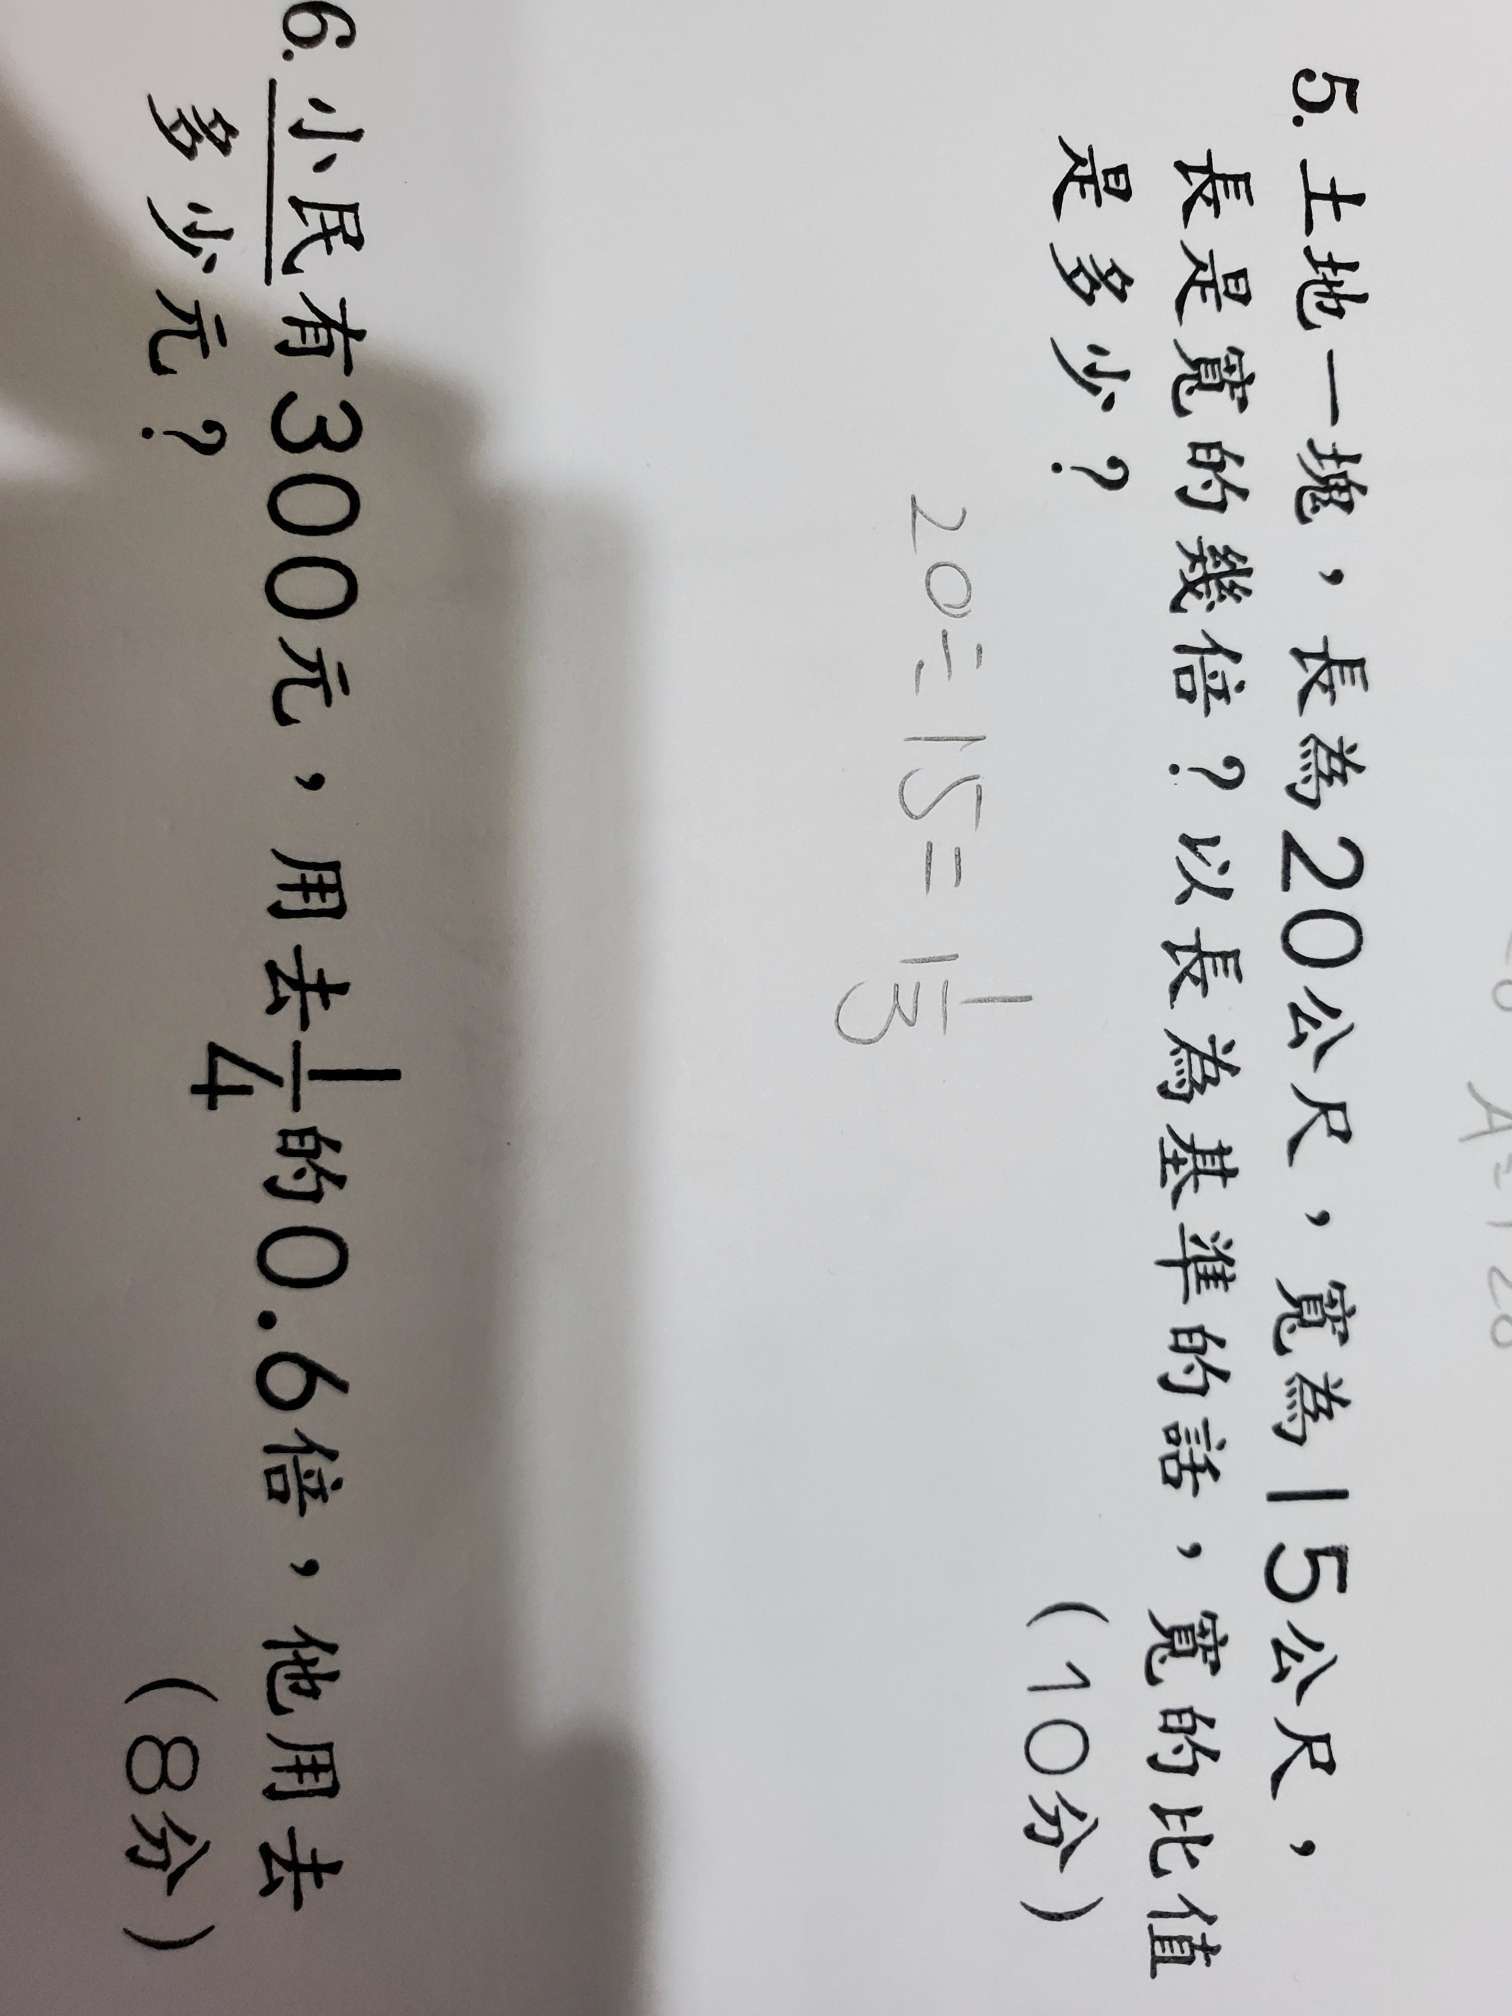 A=120
5. 土地一塊，長為20公尺，寬為15公尺，
長是寬的幾倍？以長為基準的話，寬的比值
是多少？ (10分)
20÷15=1 1/3
6. 小民有300元，用去1/4的0.6倍，他用去
多少元？ (8分)